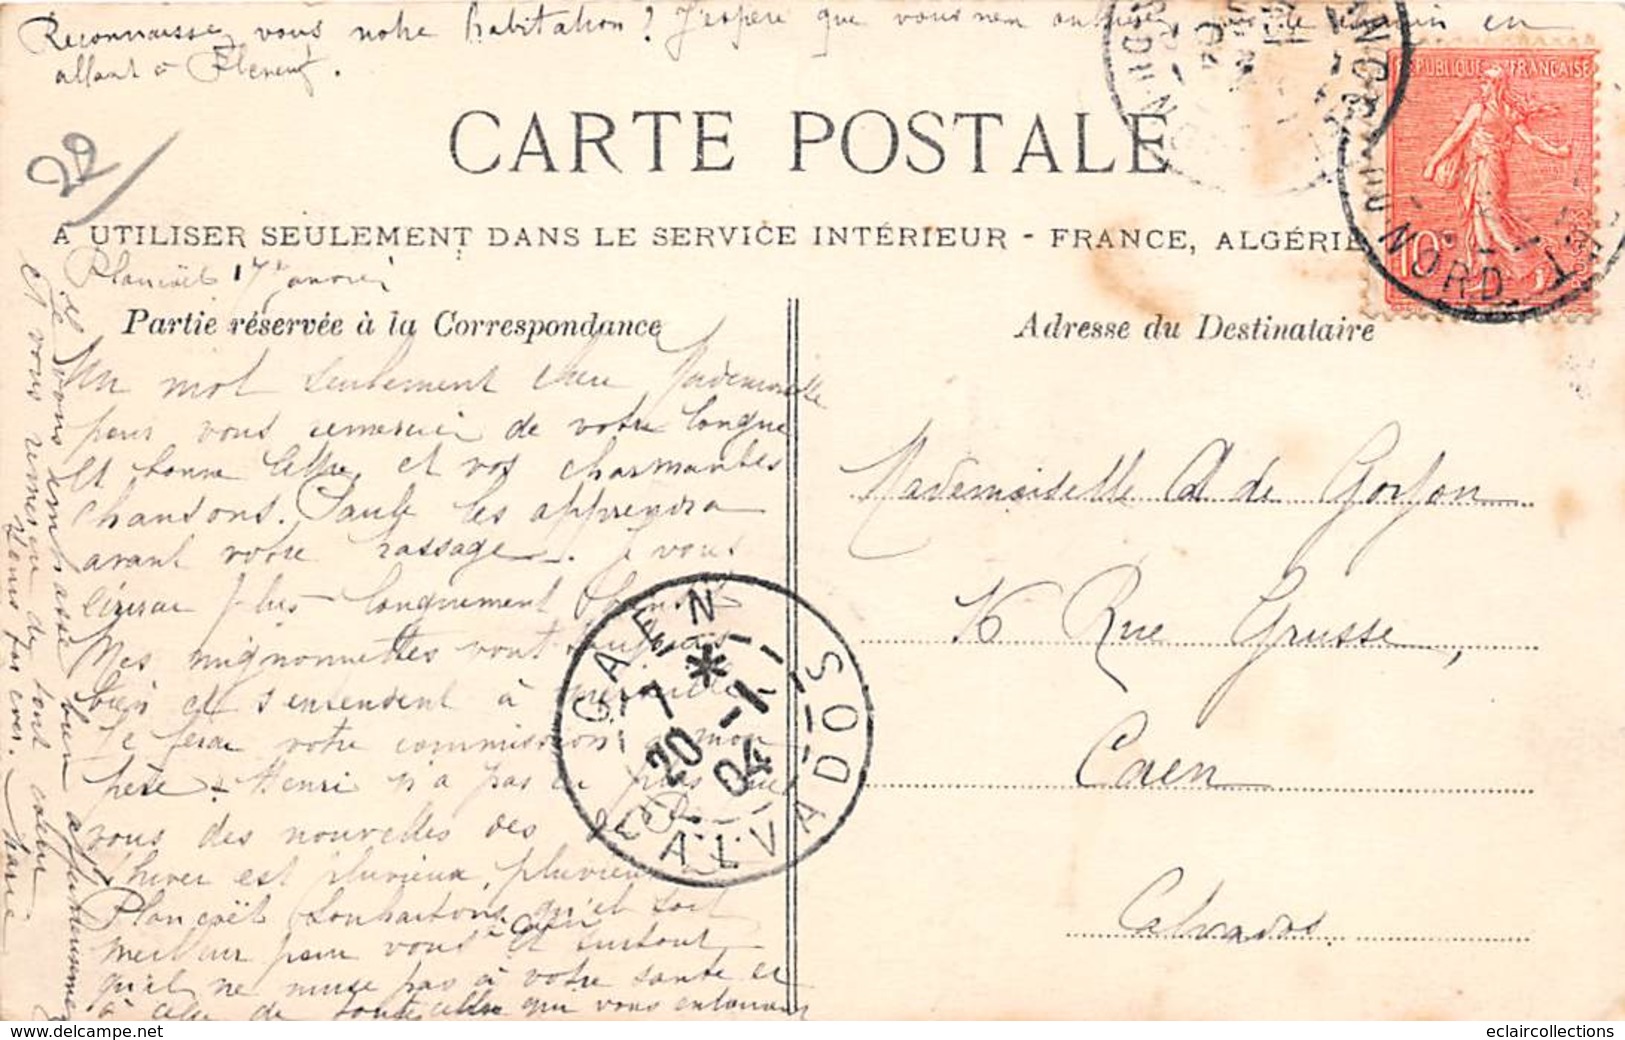 Reconnaissez vous notre habitation? J'espère que vous n'en oublierez pas le chemin en
allant à Pléneuf.
CARTE POSTALE
22
A UTILISER SEULEMENT DANS LE SERVICE INTÉRIEUR - FRANCE, ALGÉRIE
RÉPUBLIQUE FRANÇAISE
10
POSTES
Plancoët 17 janvier
Partie réservée à la Correspondance
Adresse du Destinataire
Un mot seulement chère Mademoiselle
pour vous remercier de votre longue
et bonne lettre et vos charmantes
chansons. Paule les apprendra
avant votre passage. Je vous
écrirai plus longuement
Mes mignonnettes vont toujours
bien et s'entendent à merveille
Je ferai votre commission à mon
père. Henri n'a pas eu plus que
vous des nouvelles des
l'hiver est pluvieux, pluvieux
Plancoët Souhaitons qu'il soit
meilleur pour vous à Caen et surtout
qu'il ne nuise pas à votre santé et
à celle de toutes celles qui vous entourent
Je vous embrasse bien affectueusement
et vous remercie de tout cœur
Marie
Mademoiselle A de Gorfon
16 Rue Grusse,
Caen
Calvados
CAEN
7 *
20 -1
04
CALVADOS
NORD